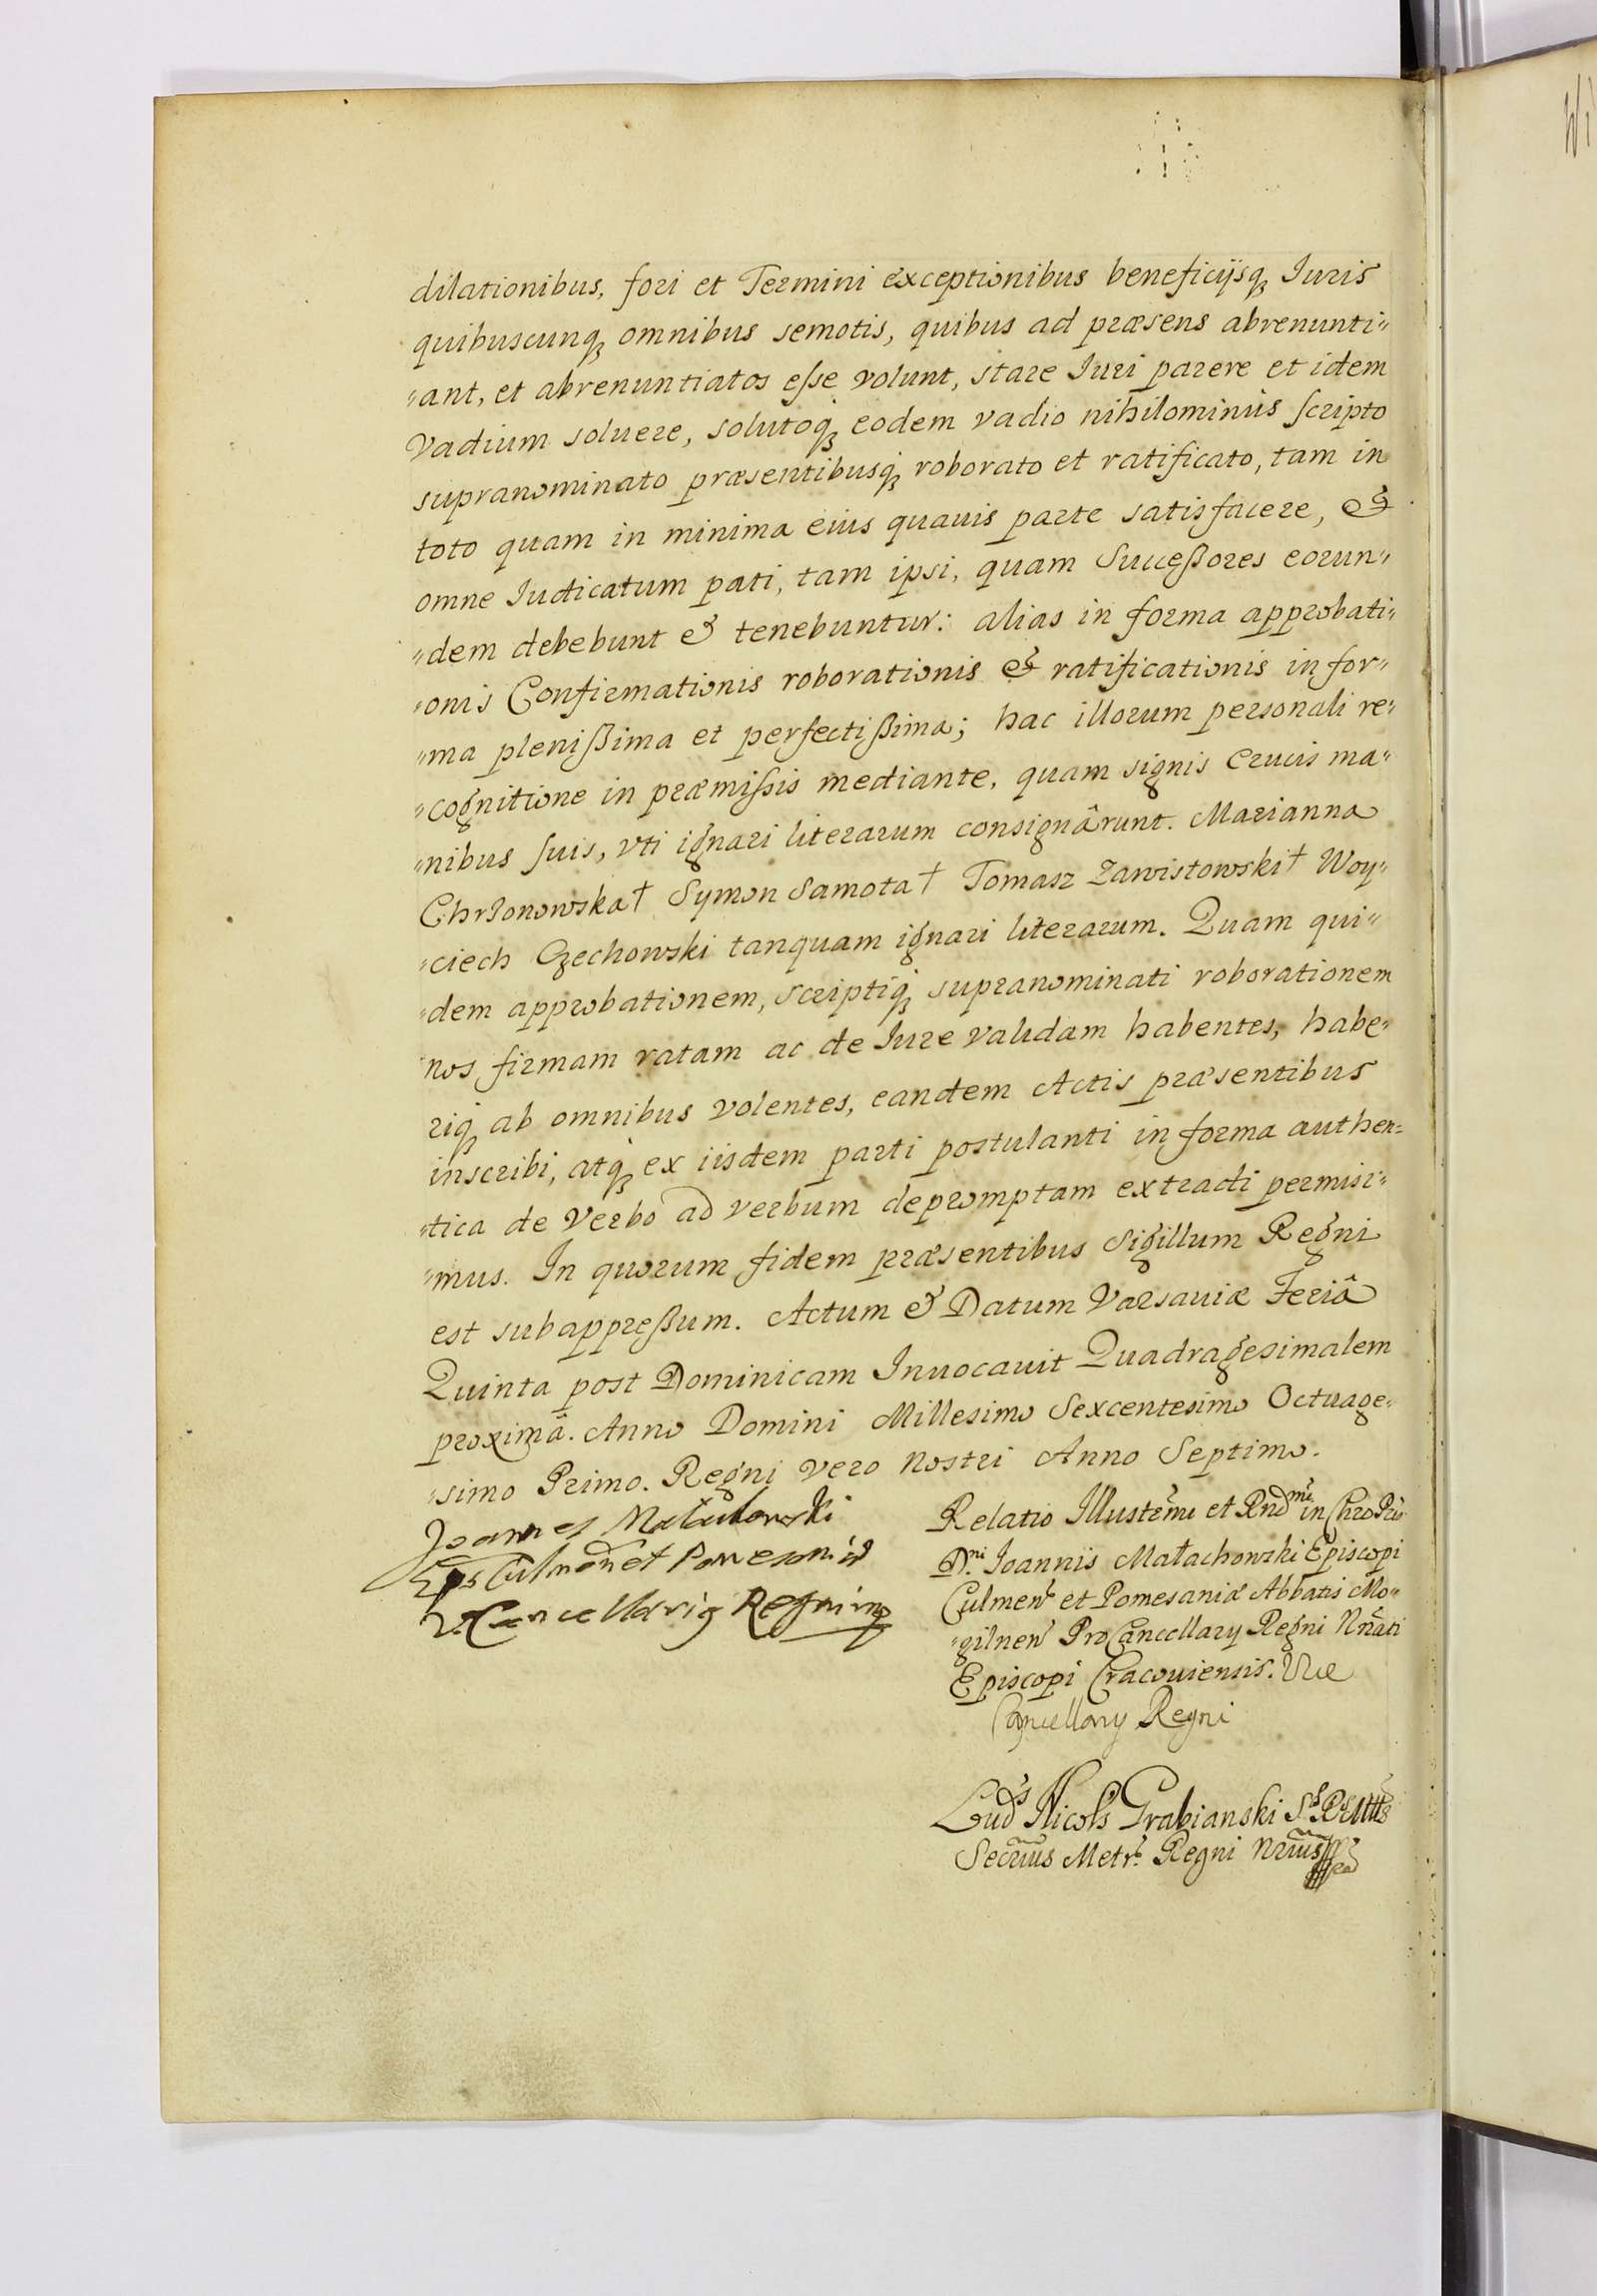 dilationibus, fori et Termini exceptionibus beneficijsq Iuris
quibuscunq omnibus semotis, quibus ad præsens abrenunti„
„ant, et abrenuntiatos esse volunt, stare Iuri parere et idem
Vadium soluere, solutoq eodem vadio nihilominus scripto
supranominato præsentibusq roborato et ratificato, tam in
toto quam in minima eius quauis parte satisfacere, &
omne Iudicatum pati, tam ipsi, quam Successores eorun„
„dem debebunt & tenebuntur: alias in forma approbati„
„onis Confirmationis roborationis & ratificationis in for„
„ma plenißima et perfectißima; hac illorum personali re„
„cognitione in præmissis mediante, quam signis Crucis ma„
„nibus suis, vti ignari literarum consignârunt. Marianna
Chrzonowska† Symon Samota† Tomasz Zawistowski† Woy„
„ciech Czechowski tanquam ignari literarum. Quam qui„
„dem approbationem, scriptiq supranominati roborationem
nos firmam ratam ac de Iure validam habentes, habe„
riq ab omnibus volentes, eandem Actis præsentibus
inscribi, atq ex iisdem parti postulanti in forma authen„
„tica de Verbo ad verbum depromptam extradi permisi„
„mus. In quorum fidem præsentibus Sigillum Regni
est subappreßum. Actum & Datum Varsauiæ Feriâ
Quinta post Dominicam Inuocauit Quadragesimalem
proximâ. Anno Domini Millesimo Sexcentesimo Octuage„
„simo Primo. Regni vero Nostri Anno Septimo.
Joannes Małachowski
Eps Culmen et Pomesaniæ
V. Cancellariq Regni mp
Relatio Illustrmi et Rndmi in Chro Pris
Dni Joannis Małachowski Episcopi
Culmen et Pomesaniæ Abbatis Mo„
„gilnen ProCancellary Regni Nnati
Episcopi Cracouiensis. Vice
Cancellary Regni
Luds Nicols Grabianski
Secrius Metr. Regni